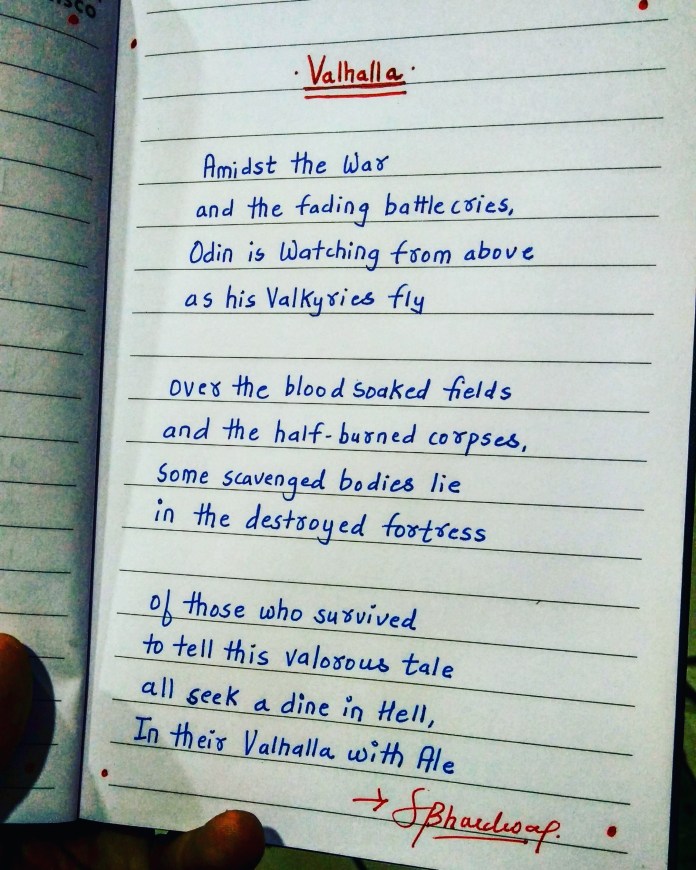 SCO
· Valhalla ·
Amidst the War
and the fading battle cries,
Odin is Watching from above
as his Valkyries fly
over the blood soaked fields
and the half-burned corpses,
Some scavenged bodies lie
in the destroyed fortress
of those who survived
to tell this valorous tale
all seek a dine in Hell,
In their Valhalla with Ale
→ SBhardwaj.